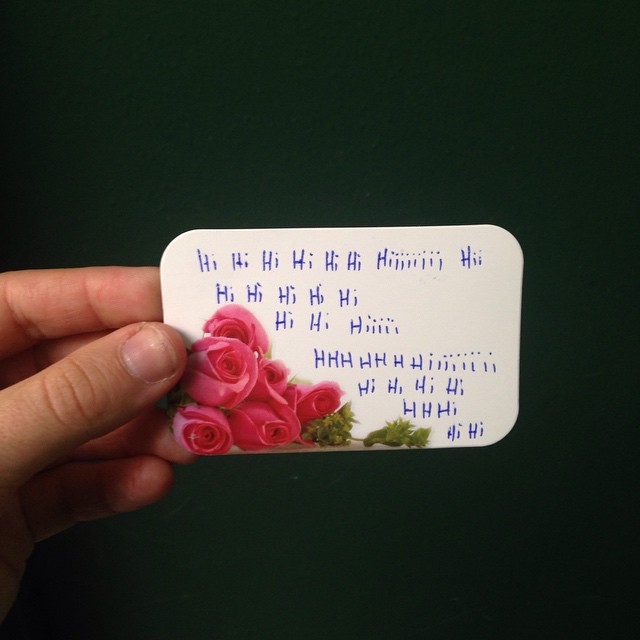 Hi Hi Hi Hi Hi Hi Hiiiiiii Hii
Hi Hi Hi Hi Hi
Hi Hi Hiiiii
HHHHHHHiiiiiiii
Hi Hi Hi Hi
HHHi
Hi Hi